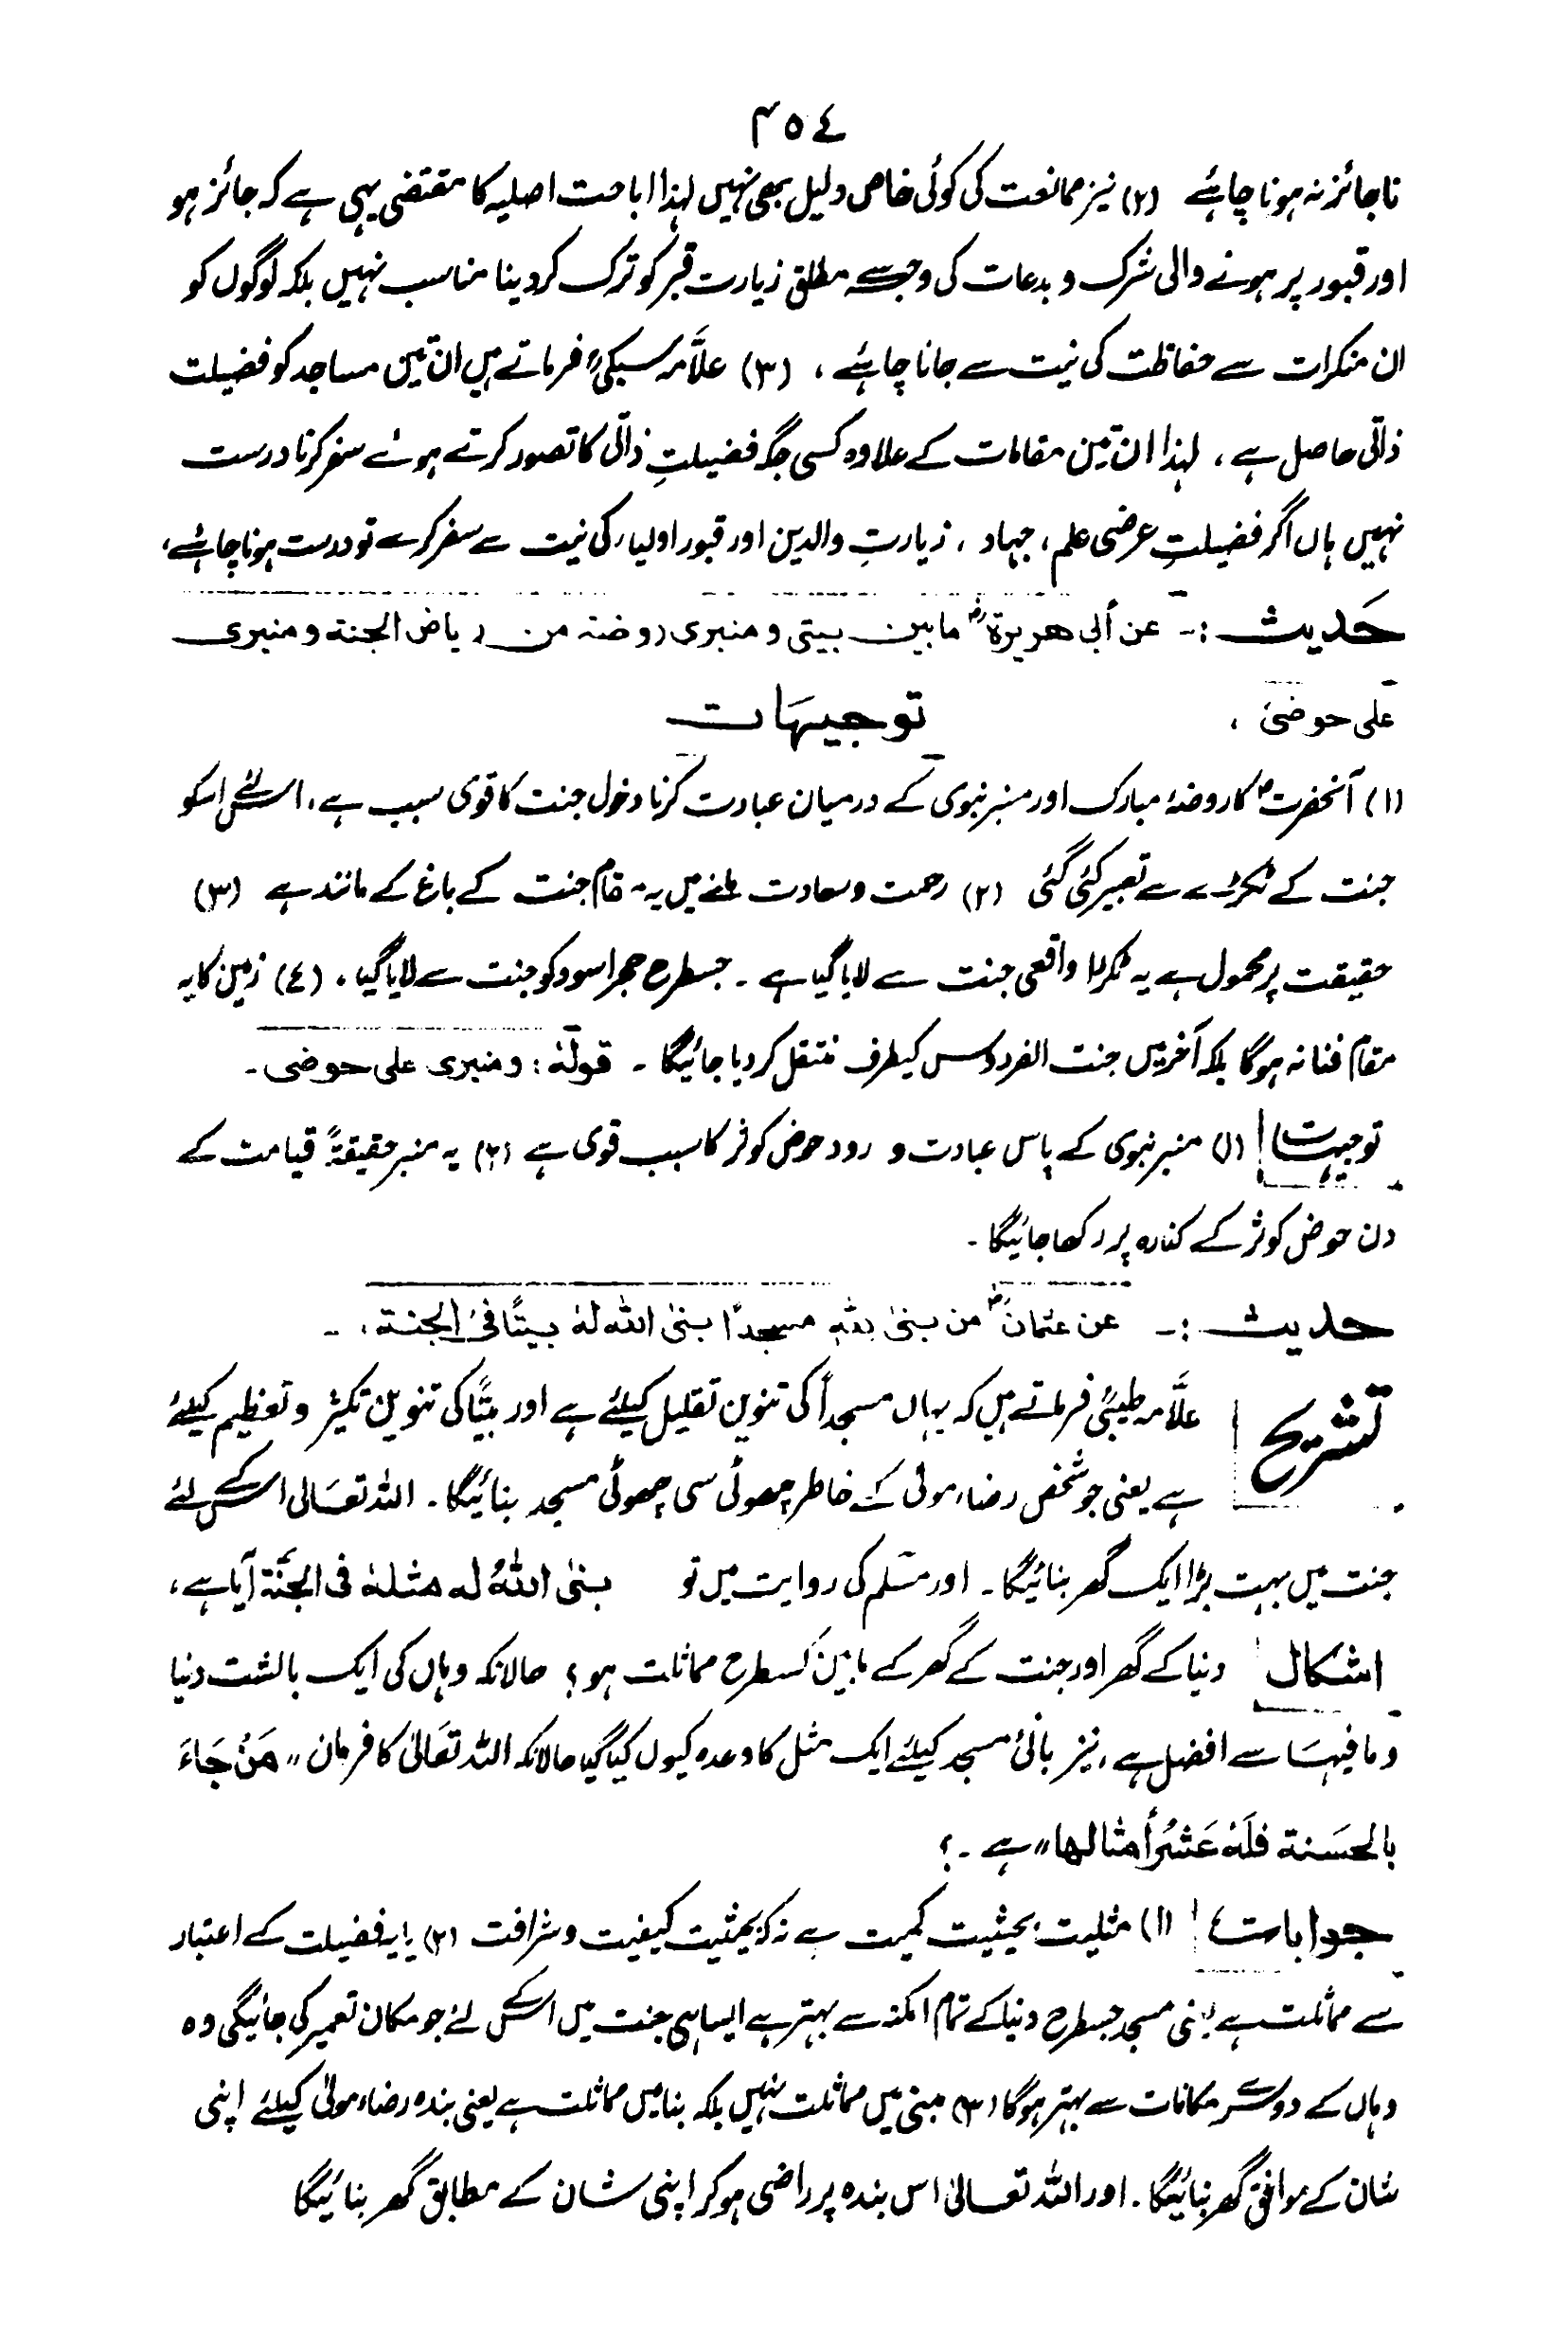 ۴۵٤
ناجائز نہ ہونا چاہئے (۲) نیز ممانعت کی کوئی خاص دلیل بھی نہیں لہذا اباحت اصلیہ کا مقتضی یہی ہے کہ جائز ہو
اور قبور پر ہونے والی شرک و بدعات کی وجہ سے مطلق زیارت قبر کو ترک کر دینا مناسب نہیں بلکہ لوگوں کو
ان منکرات سے حفاظت کی نیت سے جانا چاہئے ، (۳) علاَّمہ سبکیؒ فرماتے ہیں ان تین مساجد کو فضیلت
ذاتی حاصل ہے ، لہذا ان تین مقامات کے علاوہ کسی جگہ فضیلتِ ذاتی کا تصور کرتے ہوئے سفر کرنا درست
نہیں ہاں اگر فضیلتِ عرضی علم، جہاد ، زیارتِ والدین اور قبور اولیاء کی نیت سے سفر کرے تو درست ہونا چاہئے ،
حَدیث :۔ عن أبی ھریرۃؓ ما بین بیتی و منبری روضۃ من ریاض الجنۃ و منبری
علی حوضی ،
توجیہَات
(۱) آنحضرتؐ کا روضۂ مبارک اور منبر نبوی کے درمیان عبادت کرنا دخول جنت کا قوی سبب ہے ، اسلئے اسکو
جنت کے ٹکڑے سے تعبیر کئی گئی (۲) رحمت و سعادت ملنے میں یہ مقام جنت کے باغ کے مانند ہے (۳)
حقیقت پر محمول ہے یہ ٹکڑا واقعی جنت سے لایا گیا ہے ۔ جسطرح حجر اسود کو جنت سے لایا گیا ، (٤) زمین کا یہ
مقام فنا نہ ہوگا بلکہ آخر میں جنت الفردوس کیطرف منتقل کر دیا جائیگا ۔ قولہٗ : و منبری علی حوضی ۔
توجیہات (۱) منبر نبوی کے پاس عبادت و رود حوض کوثر کا سبب قوی ہے (۲) یہ منبر حقیقۃً قیامت کے
دن حوض کوثر کے کنارہ پر رکھا جائیگا ۔
حدیث :۔ عن عثمانؓ من بنیٰ للہ مسجدًا بنیٰ اللہ لہٗ بیتًا فی الجنۃ ، ۔
تشریح علاَّمہ طیبیؒ فرماتے ہیں کہ یہاں مسجداً کی تنوین تقلیل کیلئے ہے اور بیتًا کی تنوین تکثیر و تعظیم کیلئے
ہے یعنی جو شخص رضاء مولیٰ کے خاطر چھوٹی سی چھوٹی مسجد بنائیگا ۔ اللہ تعَالی اسکے لئے
جنت میں بہت بڑا ایک گھر بنائیگا ۔ اور مسلم کی روایت میں تو بنیٰ اللہُ لہ مثلہٗ فی الجنَّۃ آیا ہے ،
اشکال دنیا کے گھر اور جنت کے گھر کے مابین کسطرح مماثلت ہو ؟ حالانکہ وہاں کی ایک بالشت دنیا
و ما فیہَا سے افضل ہے ، نیز بانیٔ مسجد کیلئے ایک مثل کا وعدہ کیوں کیا گیا حالانکہ اللہ تعَالیٰ کا فرمان " مَنْ جَاءَ
بالحسَنۃ فلَہٗ عَشْرُ أمثالہا " ہے ۔؟
جوابات (۱) مثلیت بحیثیت کمیت ہے نہ کہ بحیثیت کیفیت و شرافت (۲) یا یہ فضیلت کے اعتبار
سے مماثلت ہے یعنی مسجد جسطرح دنیا کے تمام امکنہ سے بہتر ہے ایسا ہی جنت میں اسکے لئے جو مکان تعمیر کی جائیگی وہ
وہاں کے دوسرے مکانات سے بہتر ہوگا (۳) مبنی میں مماثلت نہیں بلکہ بنا میں مماثلت ہے یعنی بندہ رضاء مولیٰ کیلئے اپنی
شان کے موافق گھر بنائیگا ۔ اور اللہ تعالیٰ اس بندہ پر راضی ہو کر اپنی شان کے مطابق گھر بنائیگا